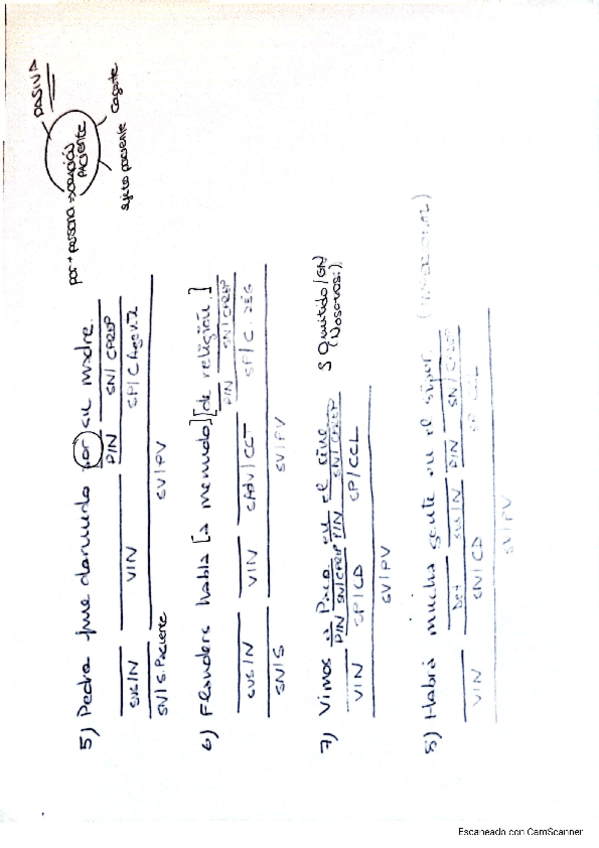 por + persona → oración PACIENTE
PASIVA
Cagente
sujeto paciente
5) Pedro fue llamado por su madre.
P/N SN/CPREP
SUS/N V/N SP/C Agente
SN/S.Paciente SV/PV
6) Flanders habla [a menudo] [de religión.]
P/N SN/CPREP
SUS/N V/N SAdv/CCT SP/C.REG
SN/S SV/PV
7) Vimos a Paco en el cine S Omitido/GN
(Nosotros)
P/N SN/CPREP P/N SN/CPREP
V/N SP/CD SP/CCL
SV/PV
8) Habrá mucha gente en el súper. (IMPERSONAL)
Det SUS/N P/N SN/CPREP
V/N SN/CD SP/CCL
SV/PV
Escaneado con CamScanner